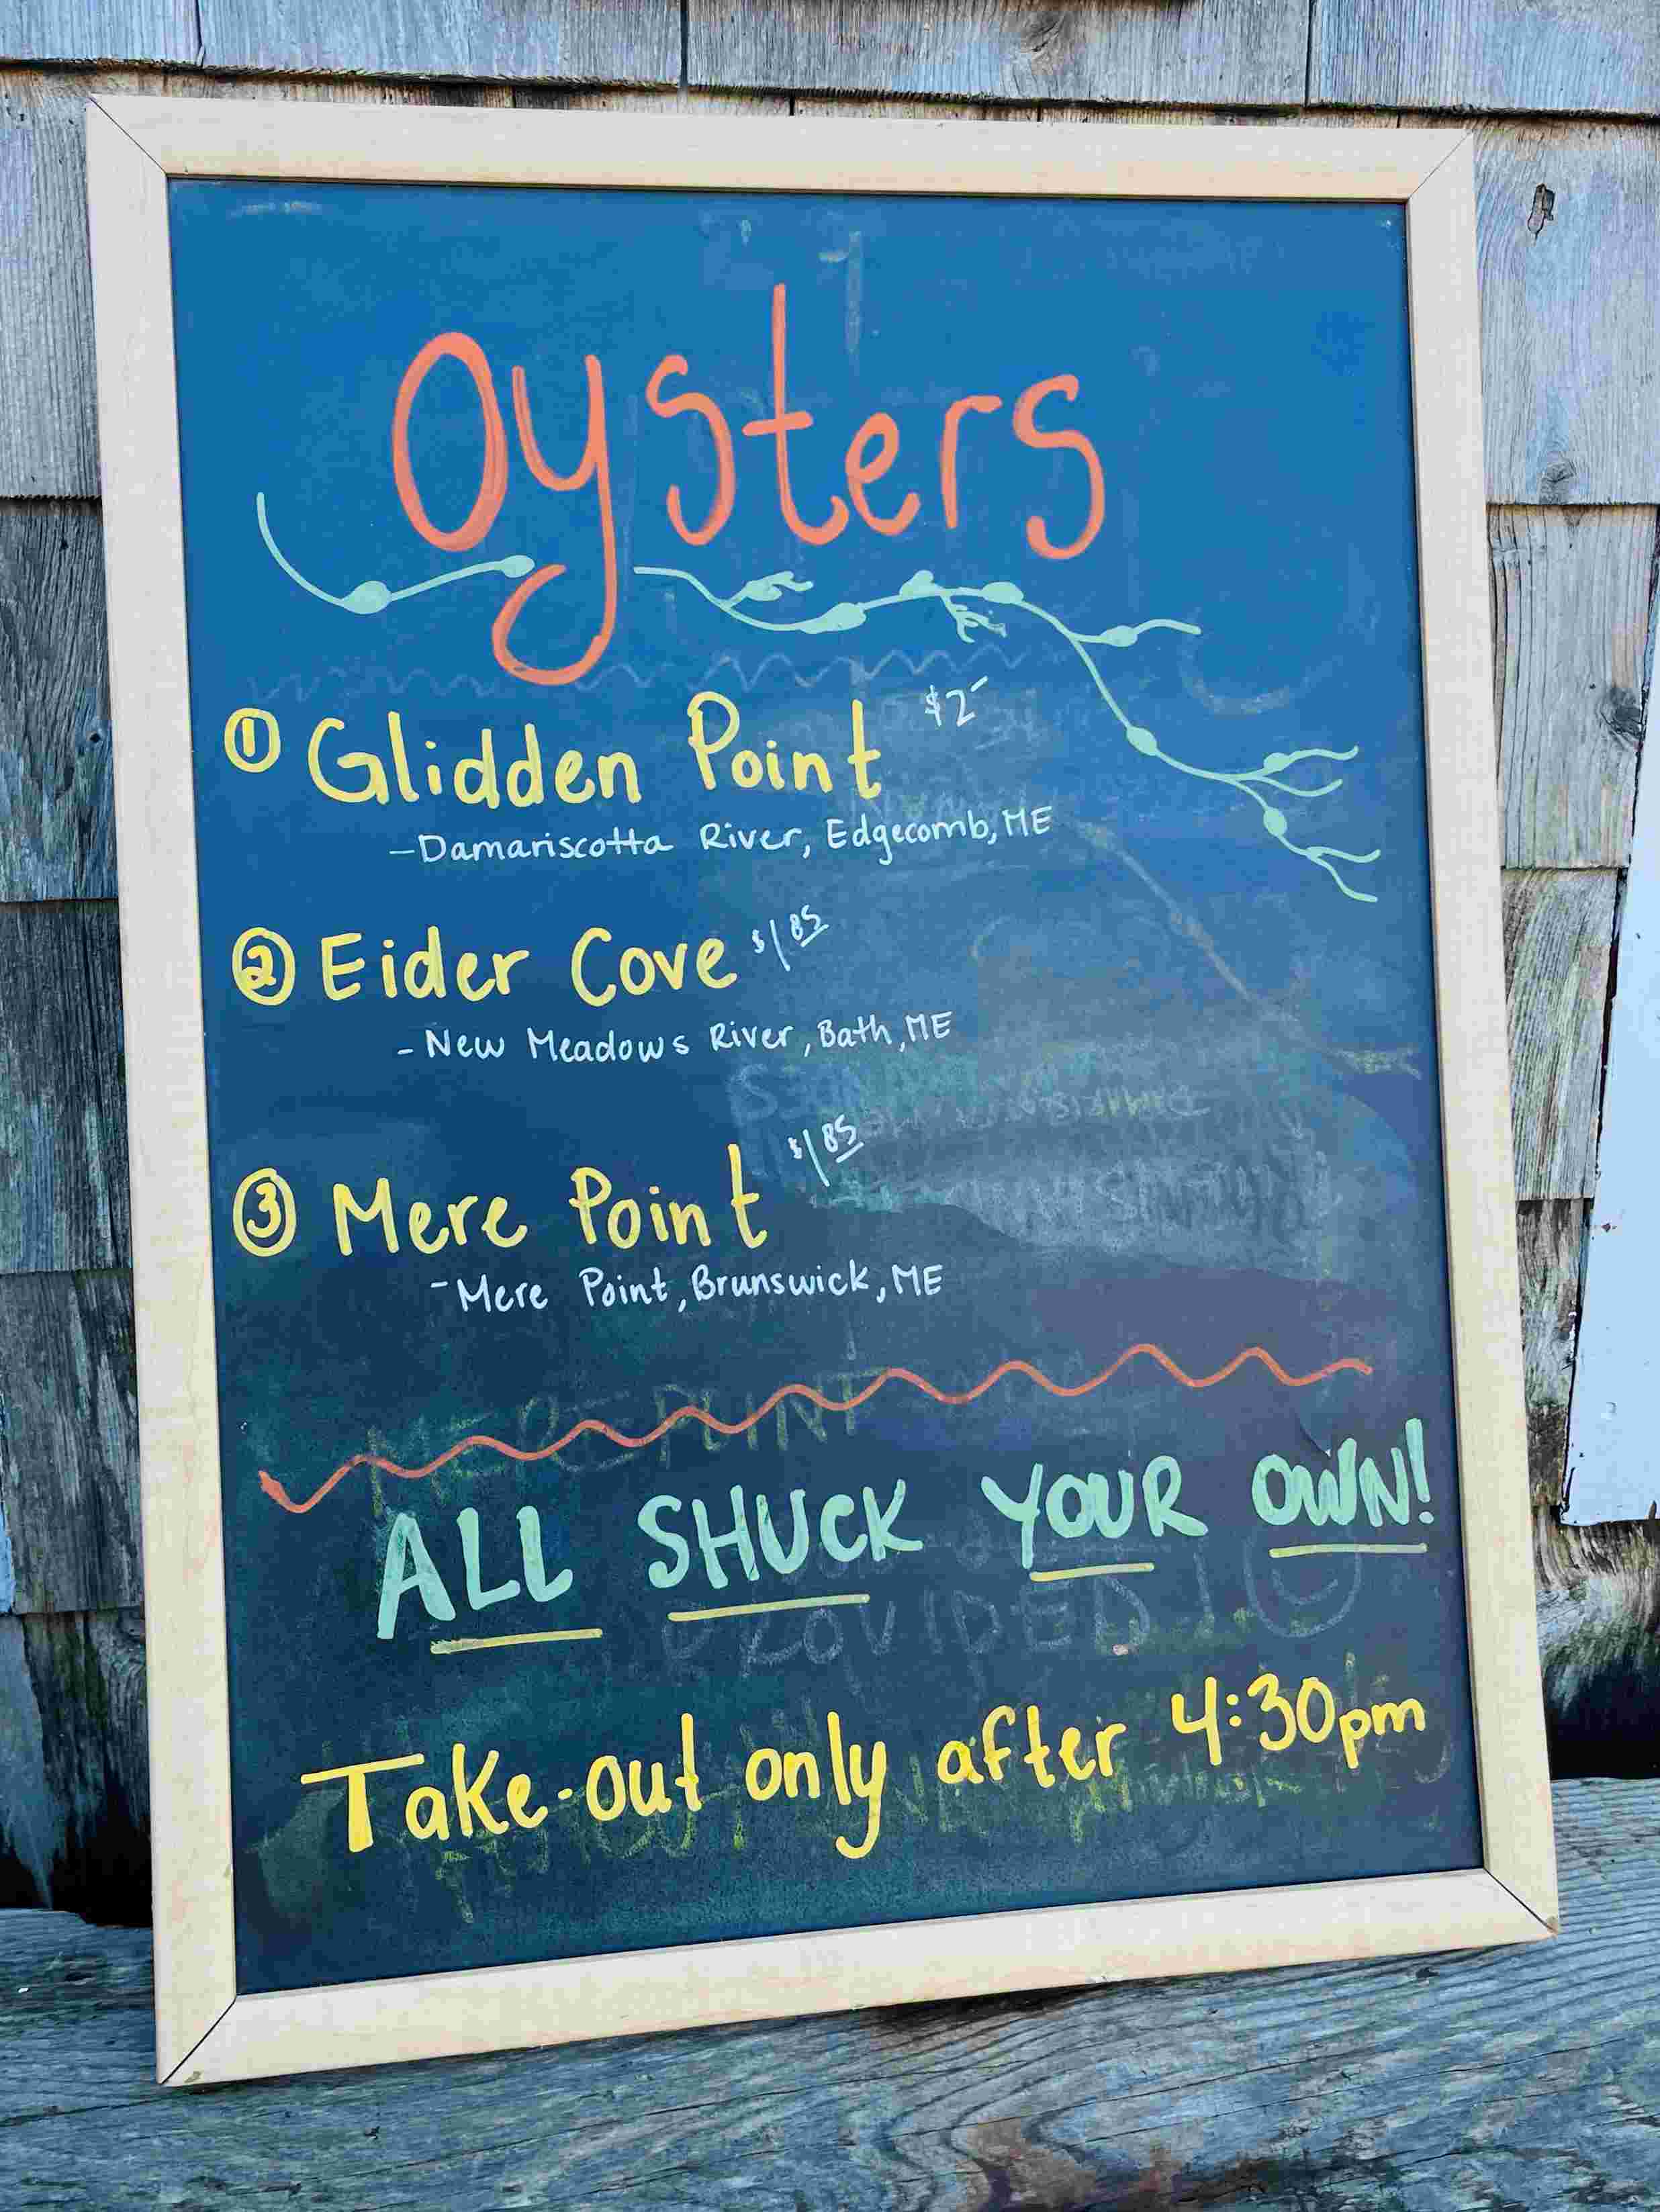 Oysters
① Glidden Point $2-
-Damariscotta River, Edgecomb, ME
② Eider Cove $1 85
- New Meadows River, Bath, ME
③ Mere Point $1 85
- Mere Point, Brunswick, ME
ALL SHUCK YOUR OWN!
PROVIDED!
Take-out only after 4:30pm